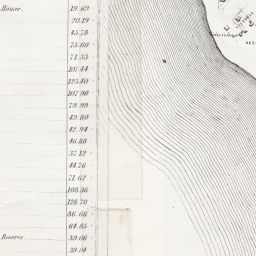 House. 19.69
20.19
45.78
75.60
71.33
107.44
125.40
107.90
79.99
49.80
42.94
46.88
37.12
44.76
71.62
108.36
128.70
86.66
64.85
Reserve. 39.06
39.04
RES